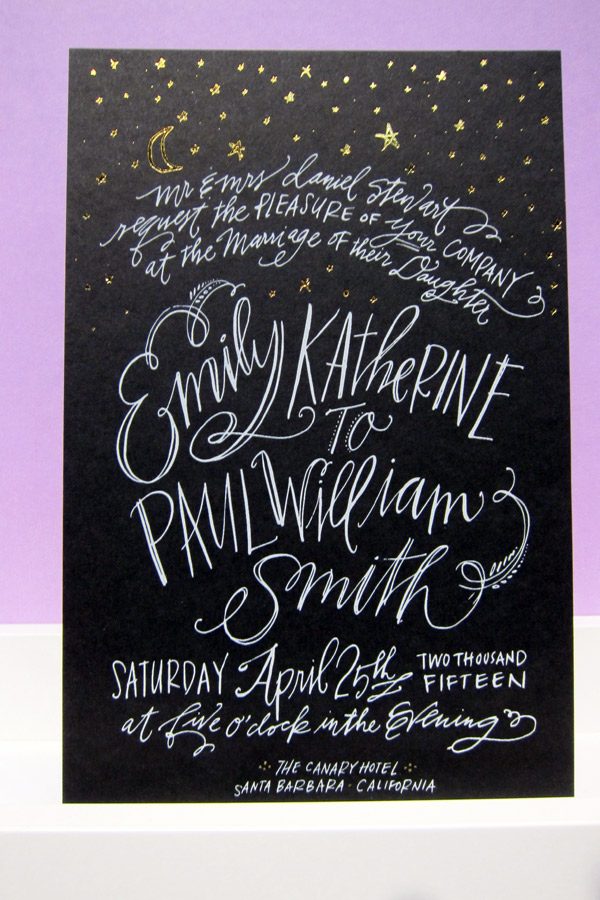 mr & mrs daniel Stewart
request the PLEASURE OF your COMPANY
at the Marriage of their Daughter
Emily KAtheRINE
TO
PAUL William
Smith
SATURDAY April 25th TWO THOUSAND
FIFTEEN
at five o'clock in the Evening
THE CANARY HOTEL
SANTA BARBARA · CALIFORNIA